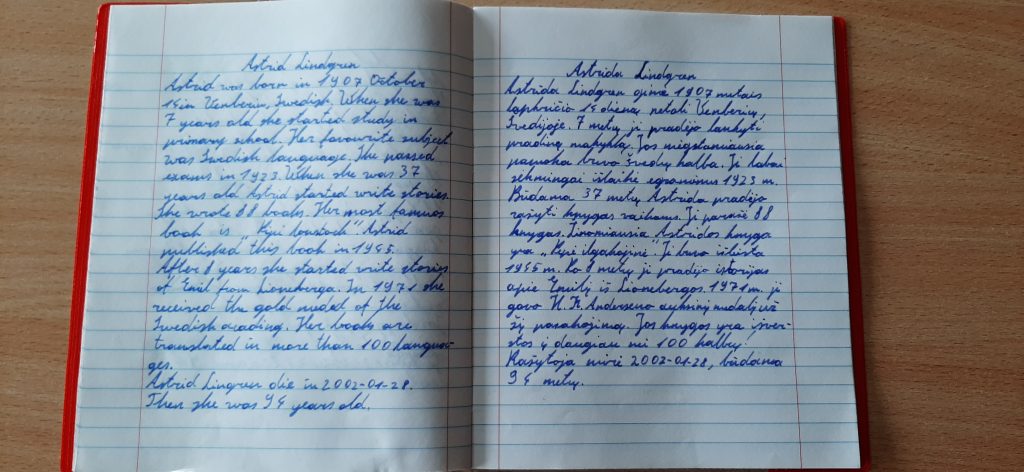 Astrid Lindgren
Astrid was born in 1907 October
14in Venberin, Swedish. When she was
7 years old she started study in
primary school. Her favourite subject
was Swedish language. She passed
exams in 1923. When she was 37
years old Astrid started write stories.
She wrote 88 books. Her most famous
book is Astrid
published this book in 1945.
After 8 years she started write stories
of Emil from Lioneberga. In 1971 she
received the gold medal of the
Swedish Her books are
translated in more than 100 langua-
ges.
Astrid Lingren die in 2002-01-28.
Then she was 94 years old.
Astrida Lindgren
Astrida Lindgren gimė 1907 metais
lapkričio 14 dieną, netoli Venberių,
Švedijoje. 7 metų ji pradėjo lankyti
pradinę mokyklą. Jos mėgstamiausia
pamoka buvo švedų kalba. Ji labai
sėkmingai išlaikė egzaminus 1923 m.
Būdama 37 metų Astrida pradėjo
rašyti knygas vaikams. Ji parašė 88
knygas. Žinomiausia Astridos knyga
yra „Pepė ilgakojinė". Ji buvo išleista
1945 m. Po 8 metų ji pradėjo istorijas
apie Emilį iš Lionebergos. 1971 m. ji
gavo H. K. Anderseno auksinį medalį už
šį pasakojimą. Jos knygos yra išver-
stos į daugiau nei 100 kalbų.
Rašytoja mirė 2002-01-28, būdama
94 metų.